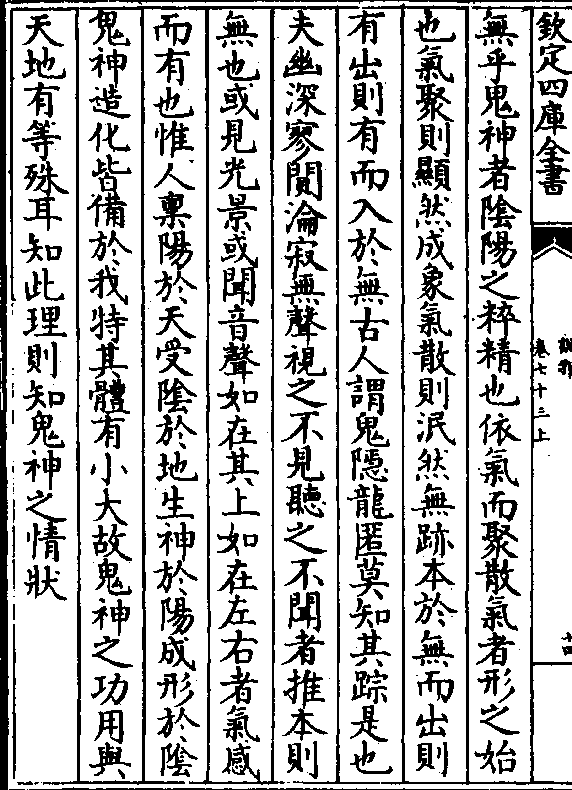 欽定四庫全書
卷七十三上
十四
無乎鬼神者陰陽之粹精也依氣而聚散氣者形之始
也氣聚則顯然成象氣散則泯然無跡本於無而出則
有出則有而入於無古人謂鬼隱龍匿莫知其踪是也
夫幽深寥闃淪寂無聲視之不見聽之不聞者推本則
無也或見光景或聞音聲如在其上如在左右者氣感
而有也惟人稟陽於天受陰於地生神於陽成形於陰
鬼神造化皆備於我特其體有小大故鬼神之功用與
天地有等殊耳知此理則知鬼神之情狀